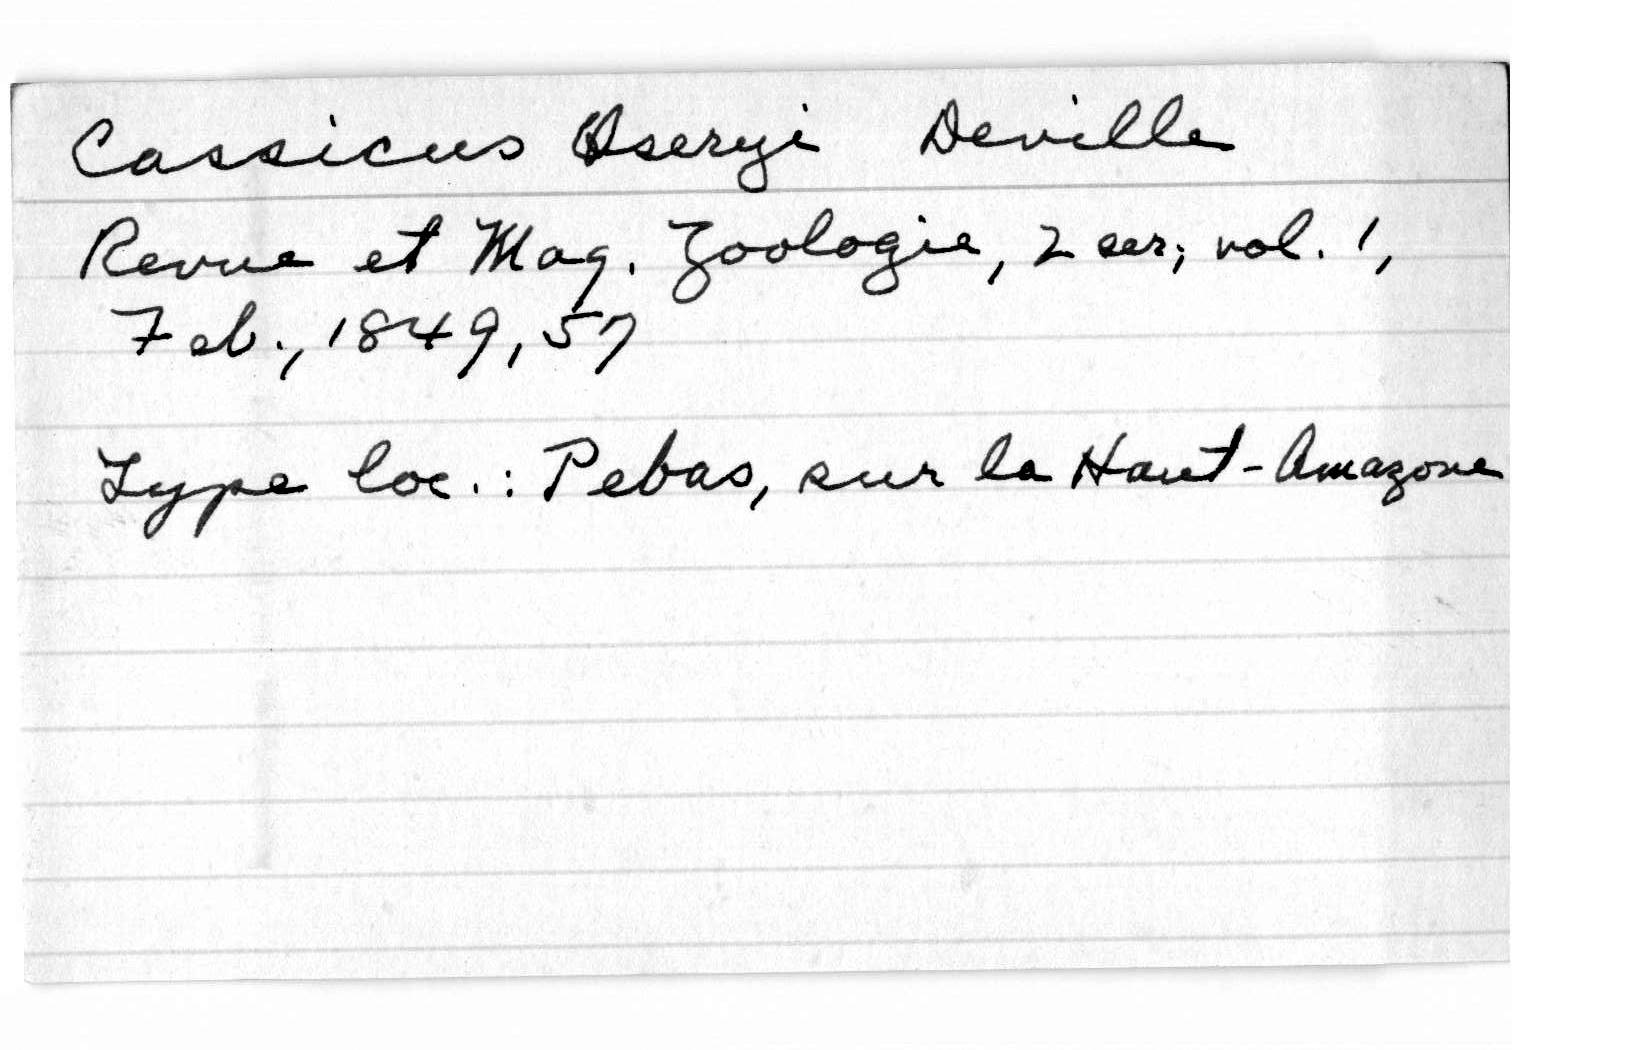 Cassicus Oseryi Deville
Revue et Mag. Zoologie, 2 ser; vol. 1,
Feb., 1849, 57
Type loc.: Pebas, sur la Haut-Amazone